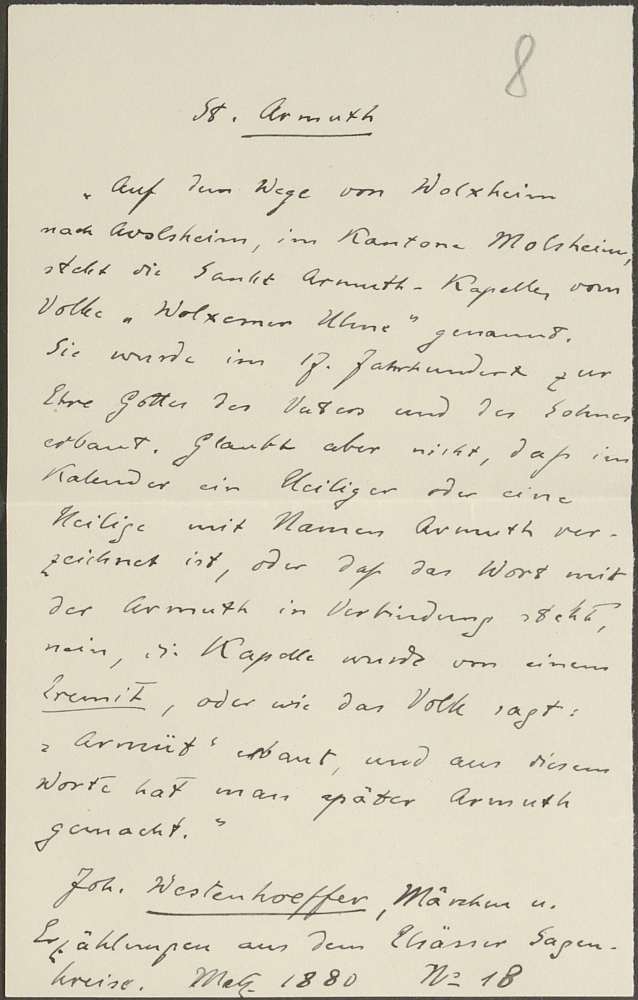 8
St. Armuth
„Auf dem Wege von Wolxheim
nach Avolsheim, im Kantone Molsheim,
steht die Sankt Armuth-Kapelle, vom
Volke „Wolxemer Uhne" genannt.
Sie wurde im 17. Jahrhundert zur
Ehre Gottes des Vaters und des Sohnes
erbaut. Glaubt aber nicht, daß im
Kalender ein Heiliger oder eine
Heilige mit Namen Armuth ver-
zeichnet ist, oder daß das Wort mit
der Armuth in Verbindung steht,
nein, die Kapelle wurde von einem
Eremit, oder wie das Volk sagt:
„Armüt" erbaut, und aus diesem
Worte hat man später Armuth
gemacht."
Joh. Westenhoeffer, Märchen u.
Erzählungen aus dem Elsässer Sagen-
kreise. Metz 1880 No 18